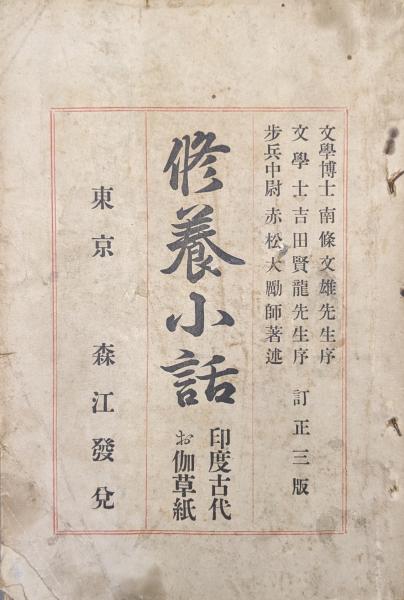 文學博士 南條文雄先生序
文學士 吉田賢龍先生序 訂正三版
步兵中尉 赤松大勵師著述
修養小話
印度古代
お伽草紙
東京 森江發兌